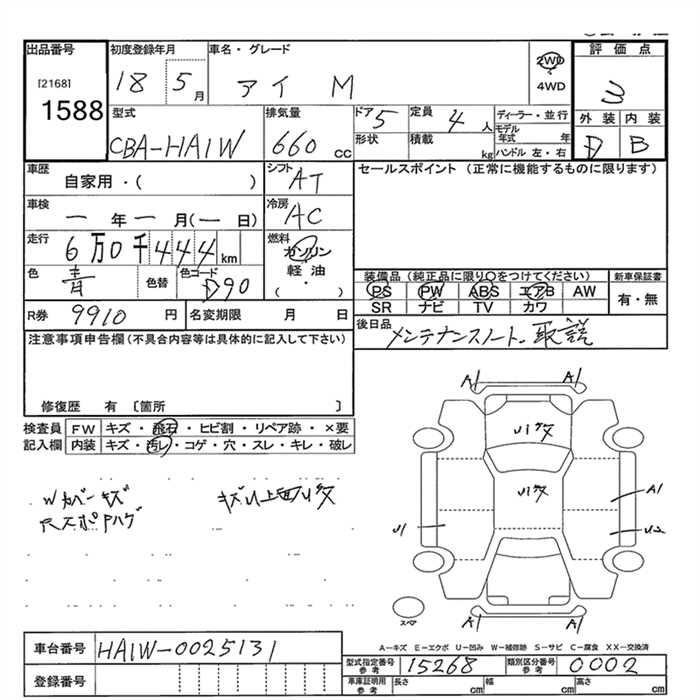 出品番号 初度登録年月 車名・グレード 2WD 評価点
[2168] 18 5月 アイ M 4WD 3
1588
型式 排気量 ドア 定員 ディーラー・並行 外装 内装
CBA-HA1W 660 cc 5 4人 モデル年式 年 D B
形状 積載 kg ハンドル 左・右
車歴 シフト セールスポイント (正常に機能するものに限ります)
自家用・( ) AT
車検 冷房
ー年ー月(ー日) AC
走行 燃料
6万0千444km ガソリン
軽油・
( )
色 色替 色コード 装備品 (純正品に限り○をつけてください) 新車保証書
青 D90 PS PW ABS エアB AW 有・無
SR ナビ TV カワ
R券 9910 円 名変期限 月 日 後日品
メンテナンスノート、取説
注意事項申告欄(不具合内容等は具体的に記入して下さい)
修復歴 有 〔箇所 〕
検査員 FW キズ・飛石・ヒビ割・リペア跡・×要
記入欄 内装 キズ・汚レ・コゲ・穴・スレ・キレ・破レ
A1 A1
U1
Wカバーキズ
U1
A1
U1 U2
スペア
A―キズ E―エクボ U―凹み W―補修跡 S―サビ C―腐食 XX―交換済
車台番号 HA1W-0025131
型式指定番号 参考 15268 類別区分番号 参考 0002
登録番号
車庫証明用 参考 長さ cm 幅 cm 高さ cm